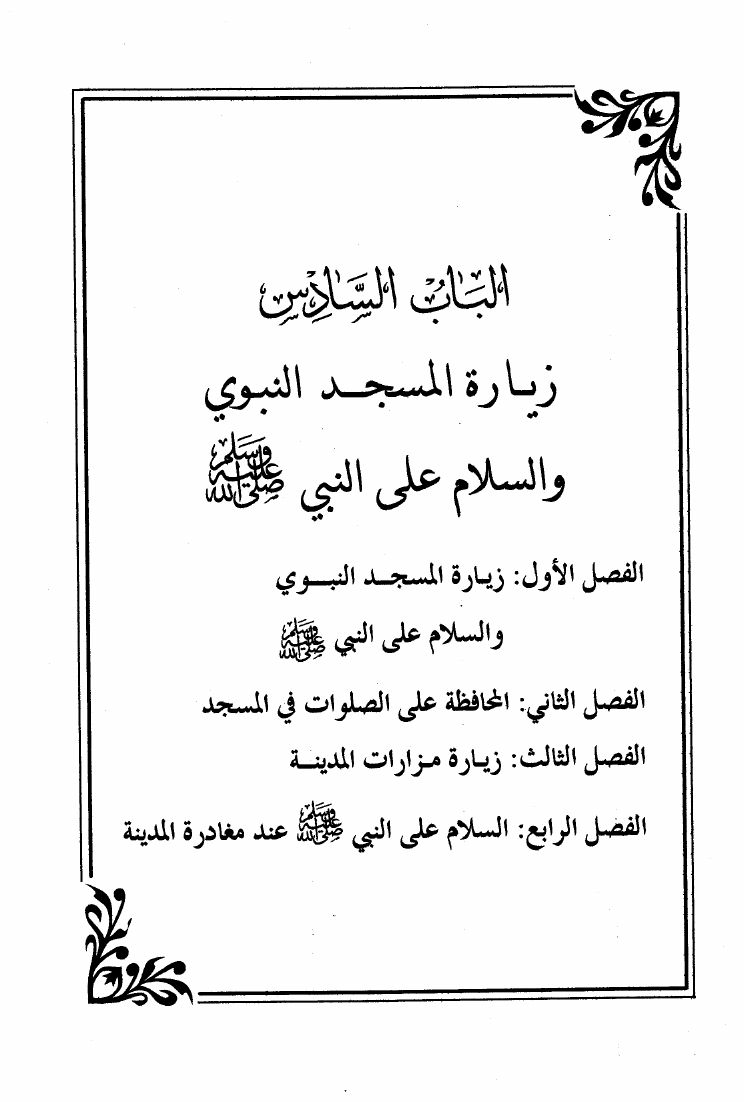 البَابُ السَّادِس
زيارة المسجد النبوي
والسلام على النبي ﷺ
الفصل الأول: زيارة المسجد النبوي
والسلام على النبي ﷺ
الفصل الثاني: المحافظة على الصلوات في المسجد
الفصل الثالث: زيارة مزارات المدينة
الفصل الرابع: السلام على النبي ﷺ عند مغادرة المدينة